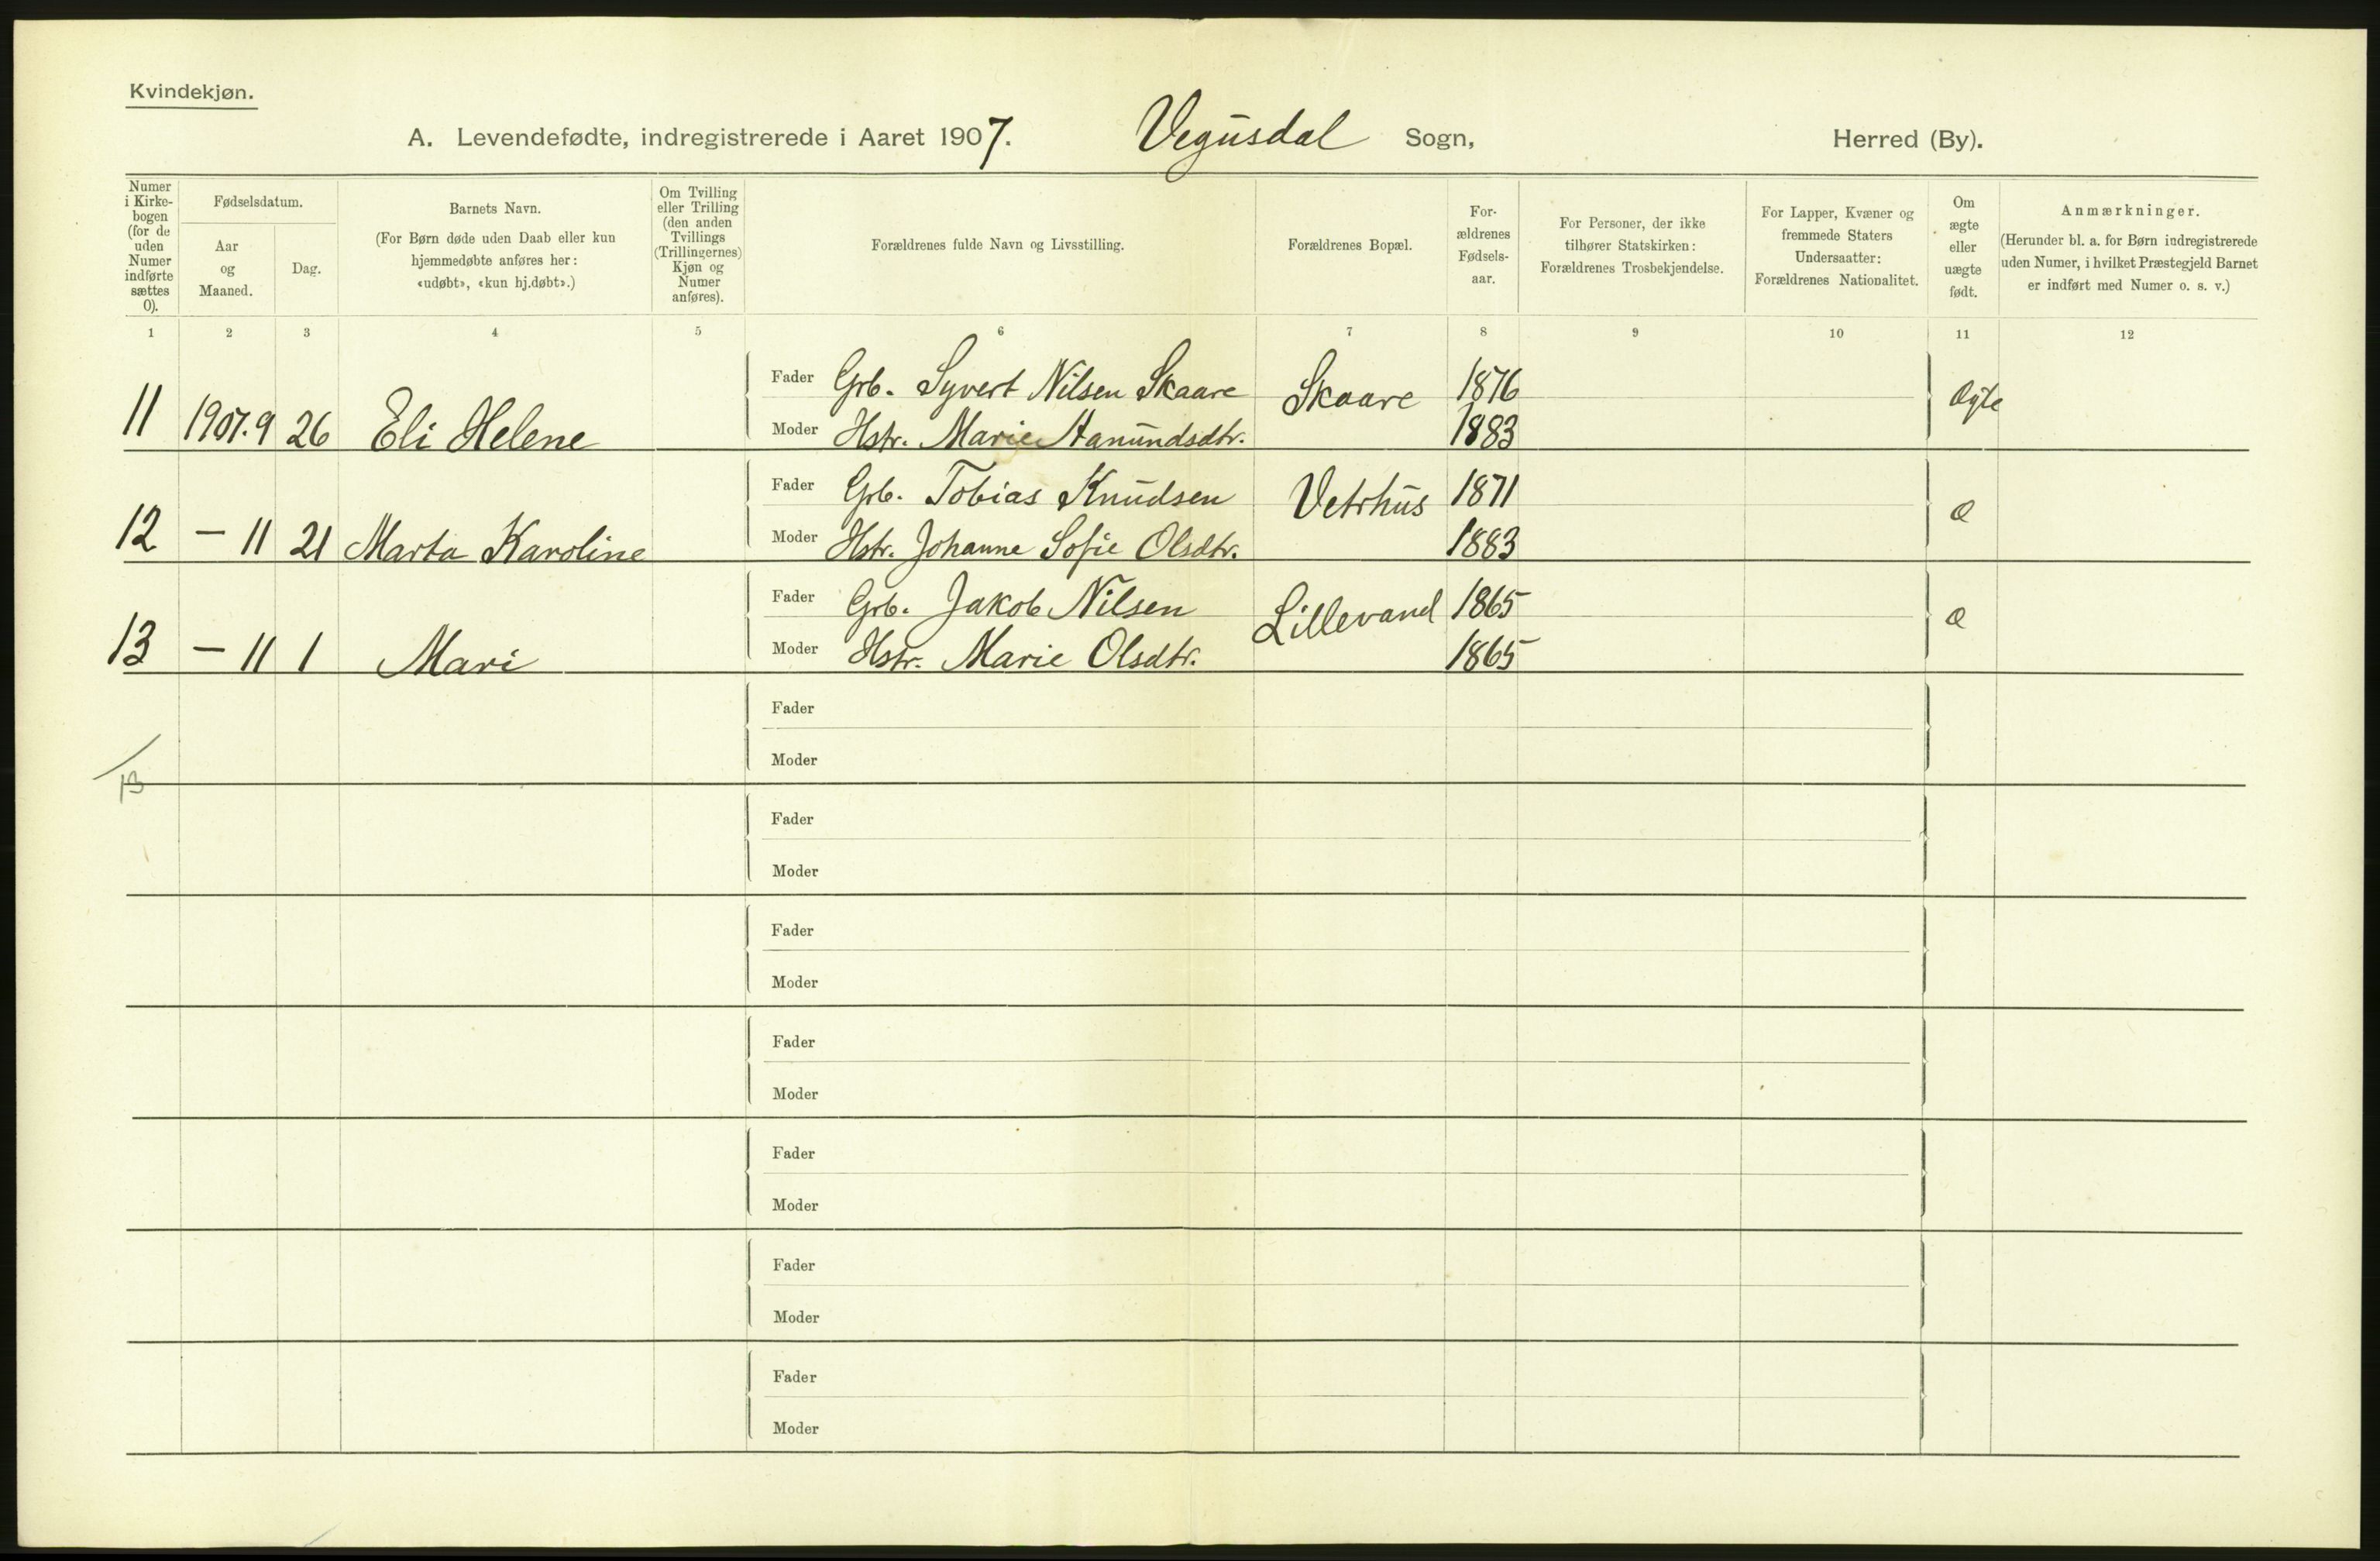 Kvindekjøn.
A. Levendefødte, indregistrerede i Aaret 1907. Vegusdal Sogn, Herred (By).
Numer i Kirke-bogen (for de uden Numer indførte sættes 0).
Fødselsdatum.
Aar og Maaned.
Dag.
Barnets Navn.
(For Børn døde uden Daab eller kun
hjemmedøbte anføres her:
«udøbt», «kun hj.døbt».)
Om Tvilling
eller Trilling
(den anden
Tvillings
(Trillingernes)
Kjøn og
Numer
anføres).
Forældrenes fulde Navn og Livsstilling.
Forældrenes Bopæl.
For-
ældrenes
Fødsels-
aar.
For Personer, der ikke
tilhører Statskirken:
Forældrenes Trosbekjendelse.
For Lapper, Kvæner og
fremmede Staters
Undersaatter:
Forældrenes Nationalitet.
Om
ægte
eller
uægte
født.
Anmærkninger.
(Herunder bl. a. for Børn indregistrerede
uden Numer, i hvilket Præstegjeld Barnet
er indført med Numer o. s. v.)
1 2 3 4 5 6 7 8 9 10 11 12
Fader Grb. Syvert Nilsen Skaare Skaare 1876 Ægte
11 1907.9 26 Eli Helene Moder Hstr. Marie Aanundsdtr. 1883
Fader Grb. Tobias Knudsen Vetrhus 1871 Æ
12 — 11 21 Marta Karoline Moder Hstr. Johanne Sofie Olsdtr. 1883
Fader Grb. Jakob Nilsen Lillevand 1865 Æ
13 — 11 1 Mari Moder Hstr. Marie Olsdtr. 1865
Fader
Moder
13
Fader
Moder
Fader
Moder
Fader
Moder
Fader
Moder
Fader
Moder
Fader
Moder